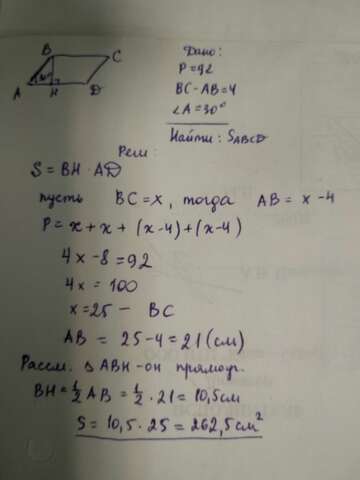 Дано:
B
C
P=92
30°
BC-AB=4
A
H
D
∠A=30°
Найти: SABCD
Реш:
S=BH·AD
пусть BC=x, тогда AB=x-4
P=x+x+(x-4)+(x-4)
4x-8=92
4x=100
x=25 - BC
AB=25-4=21(см)
Рассм. △ABH-он прямоуг.
BH=1/2 AB=1/2·21=10,5см
S=10,5·25=262,5см²